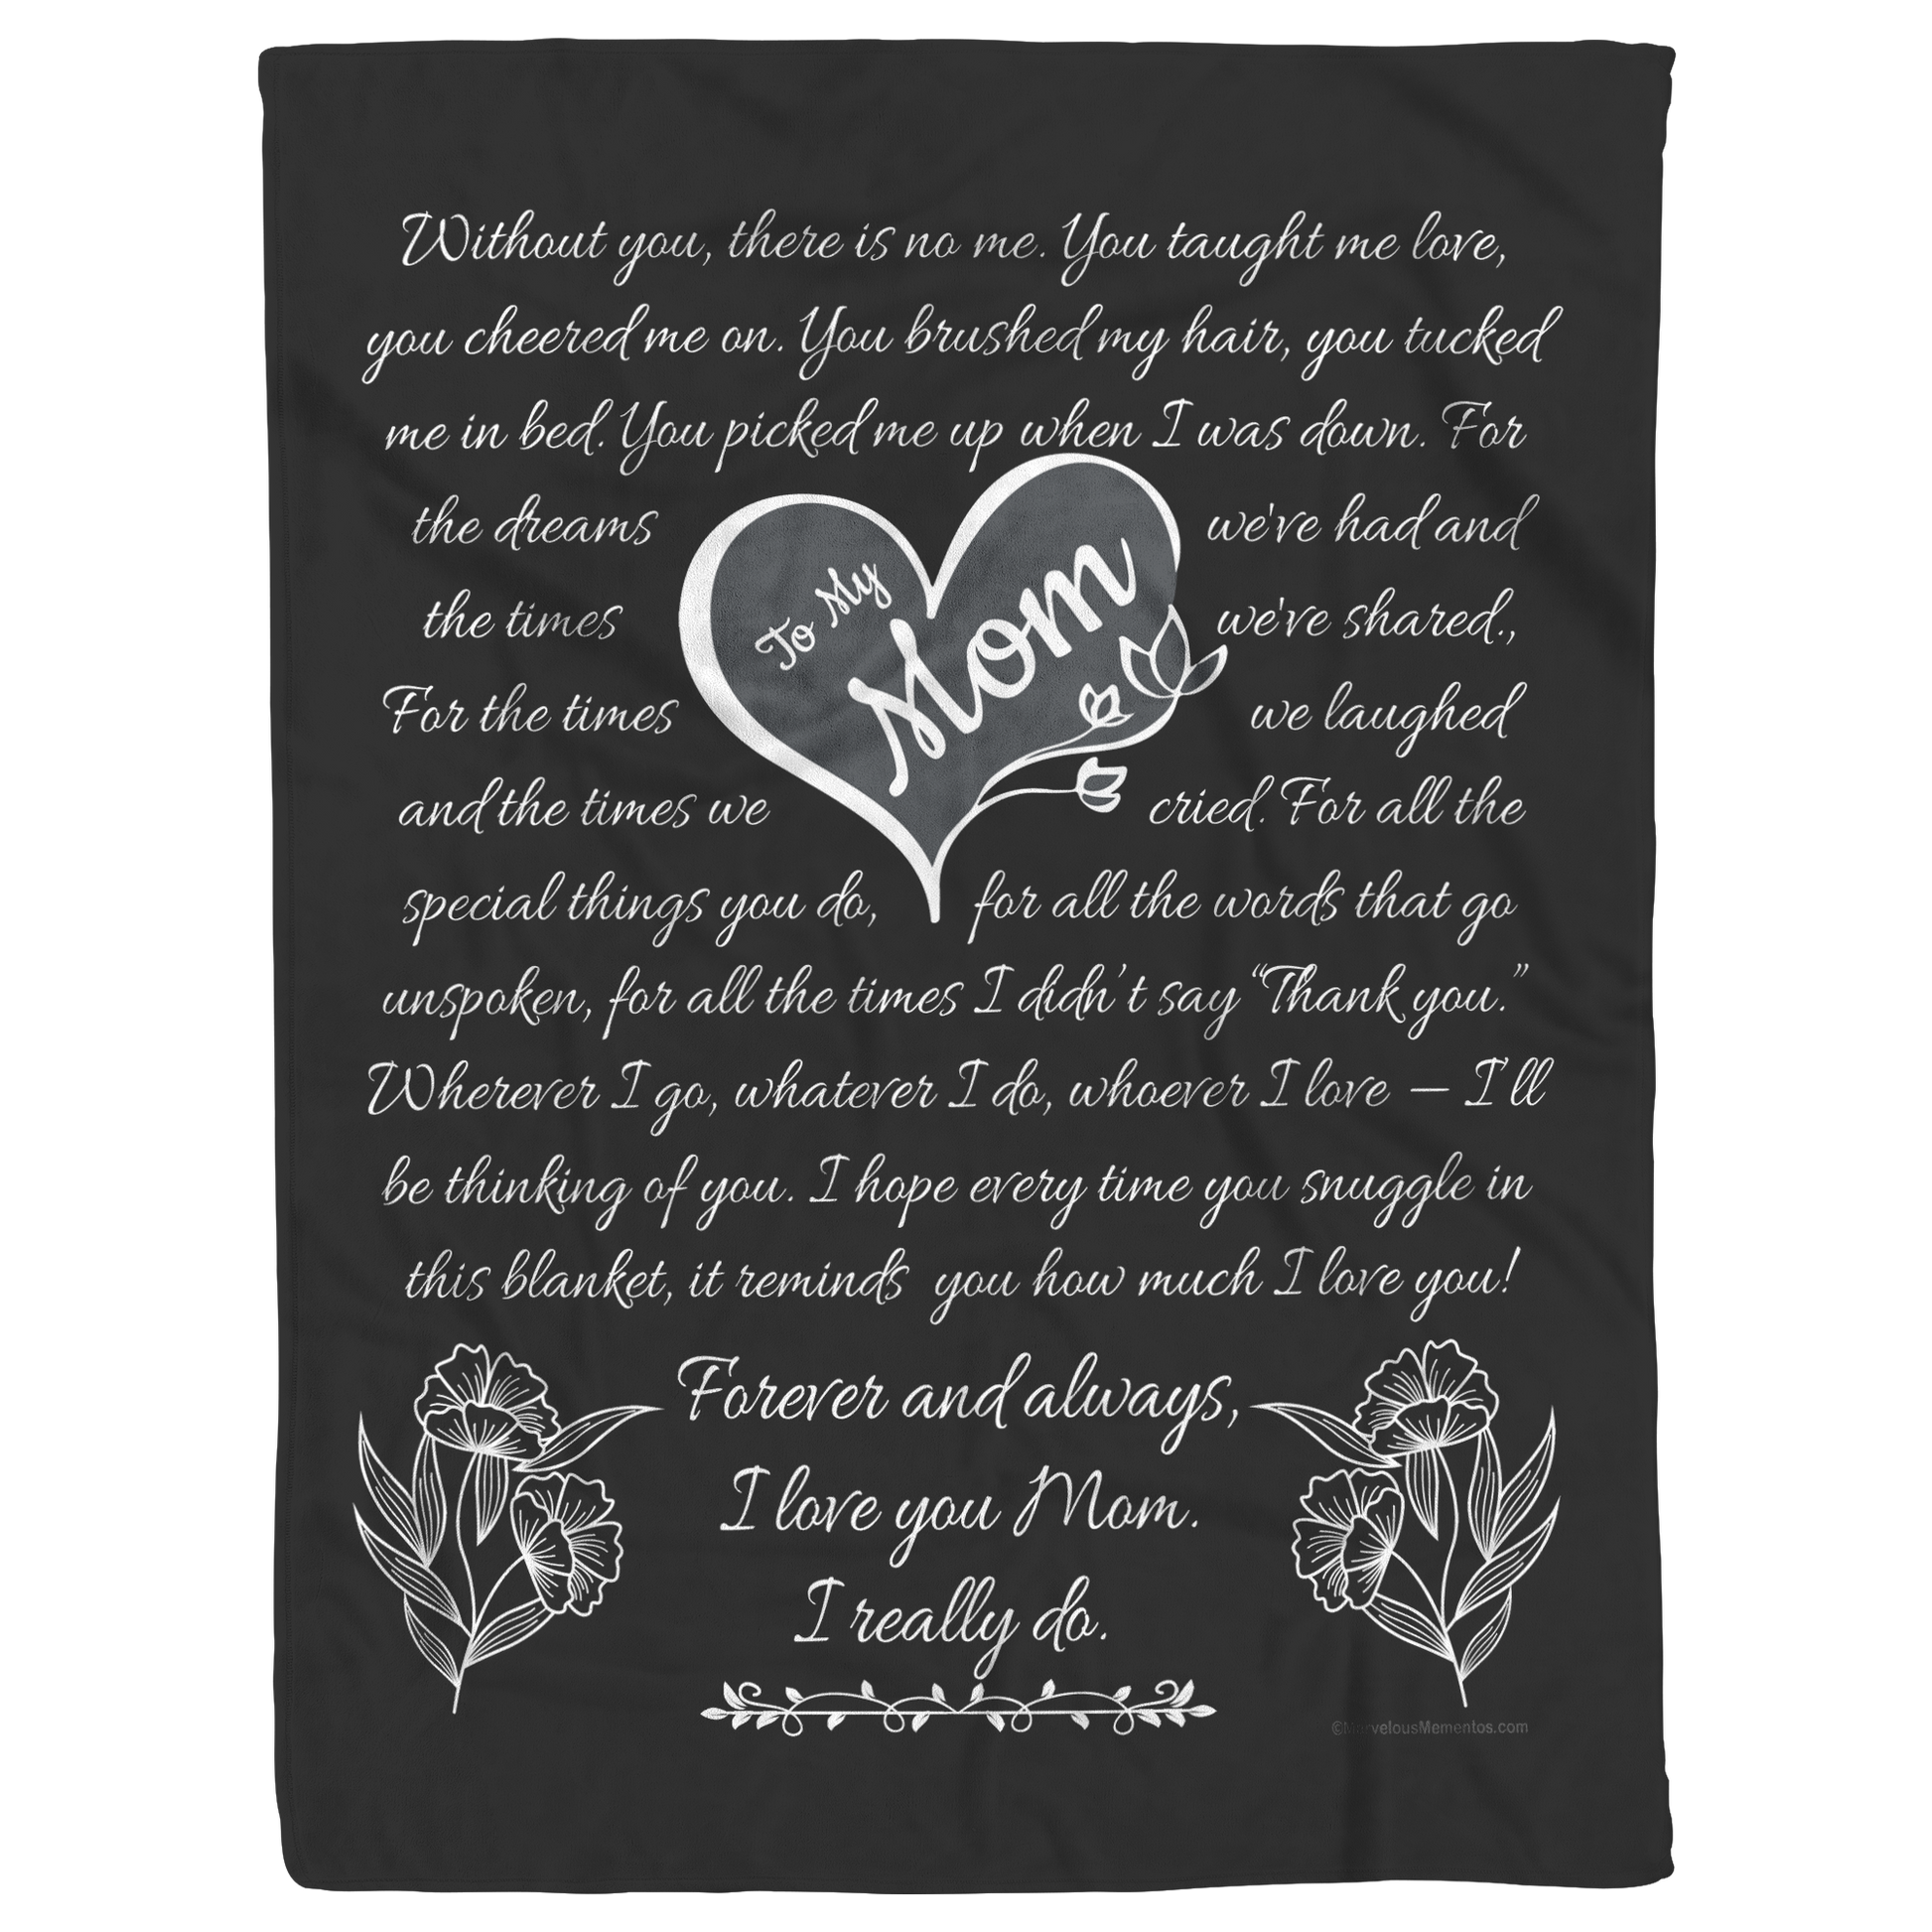 Without you, there is no me. You taught me love,
you cheered me on. You brushed my hair, you tucked
me in bed. You picked me up when I was down. For
the dreams we've had and
the times we've shared.,
For the times we laughed
and the times we cried. For all the
To My
Mom
special things you do, for all the words that go
unspoken, for all the times I didn't say “Thank you.”
Wherever I go, whatever I do, whoever I love — I'll
be thinking of you. I hope every time you snuggle in
this blanket, it reminds you how much I love you!
Forever and always,
I love you Mom.
I really do.
©MarvelousMementos.com